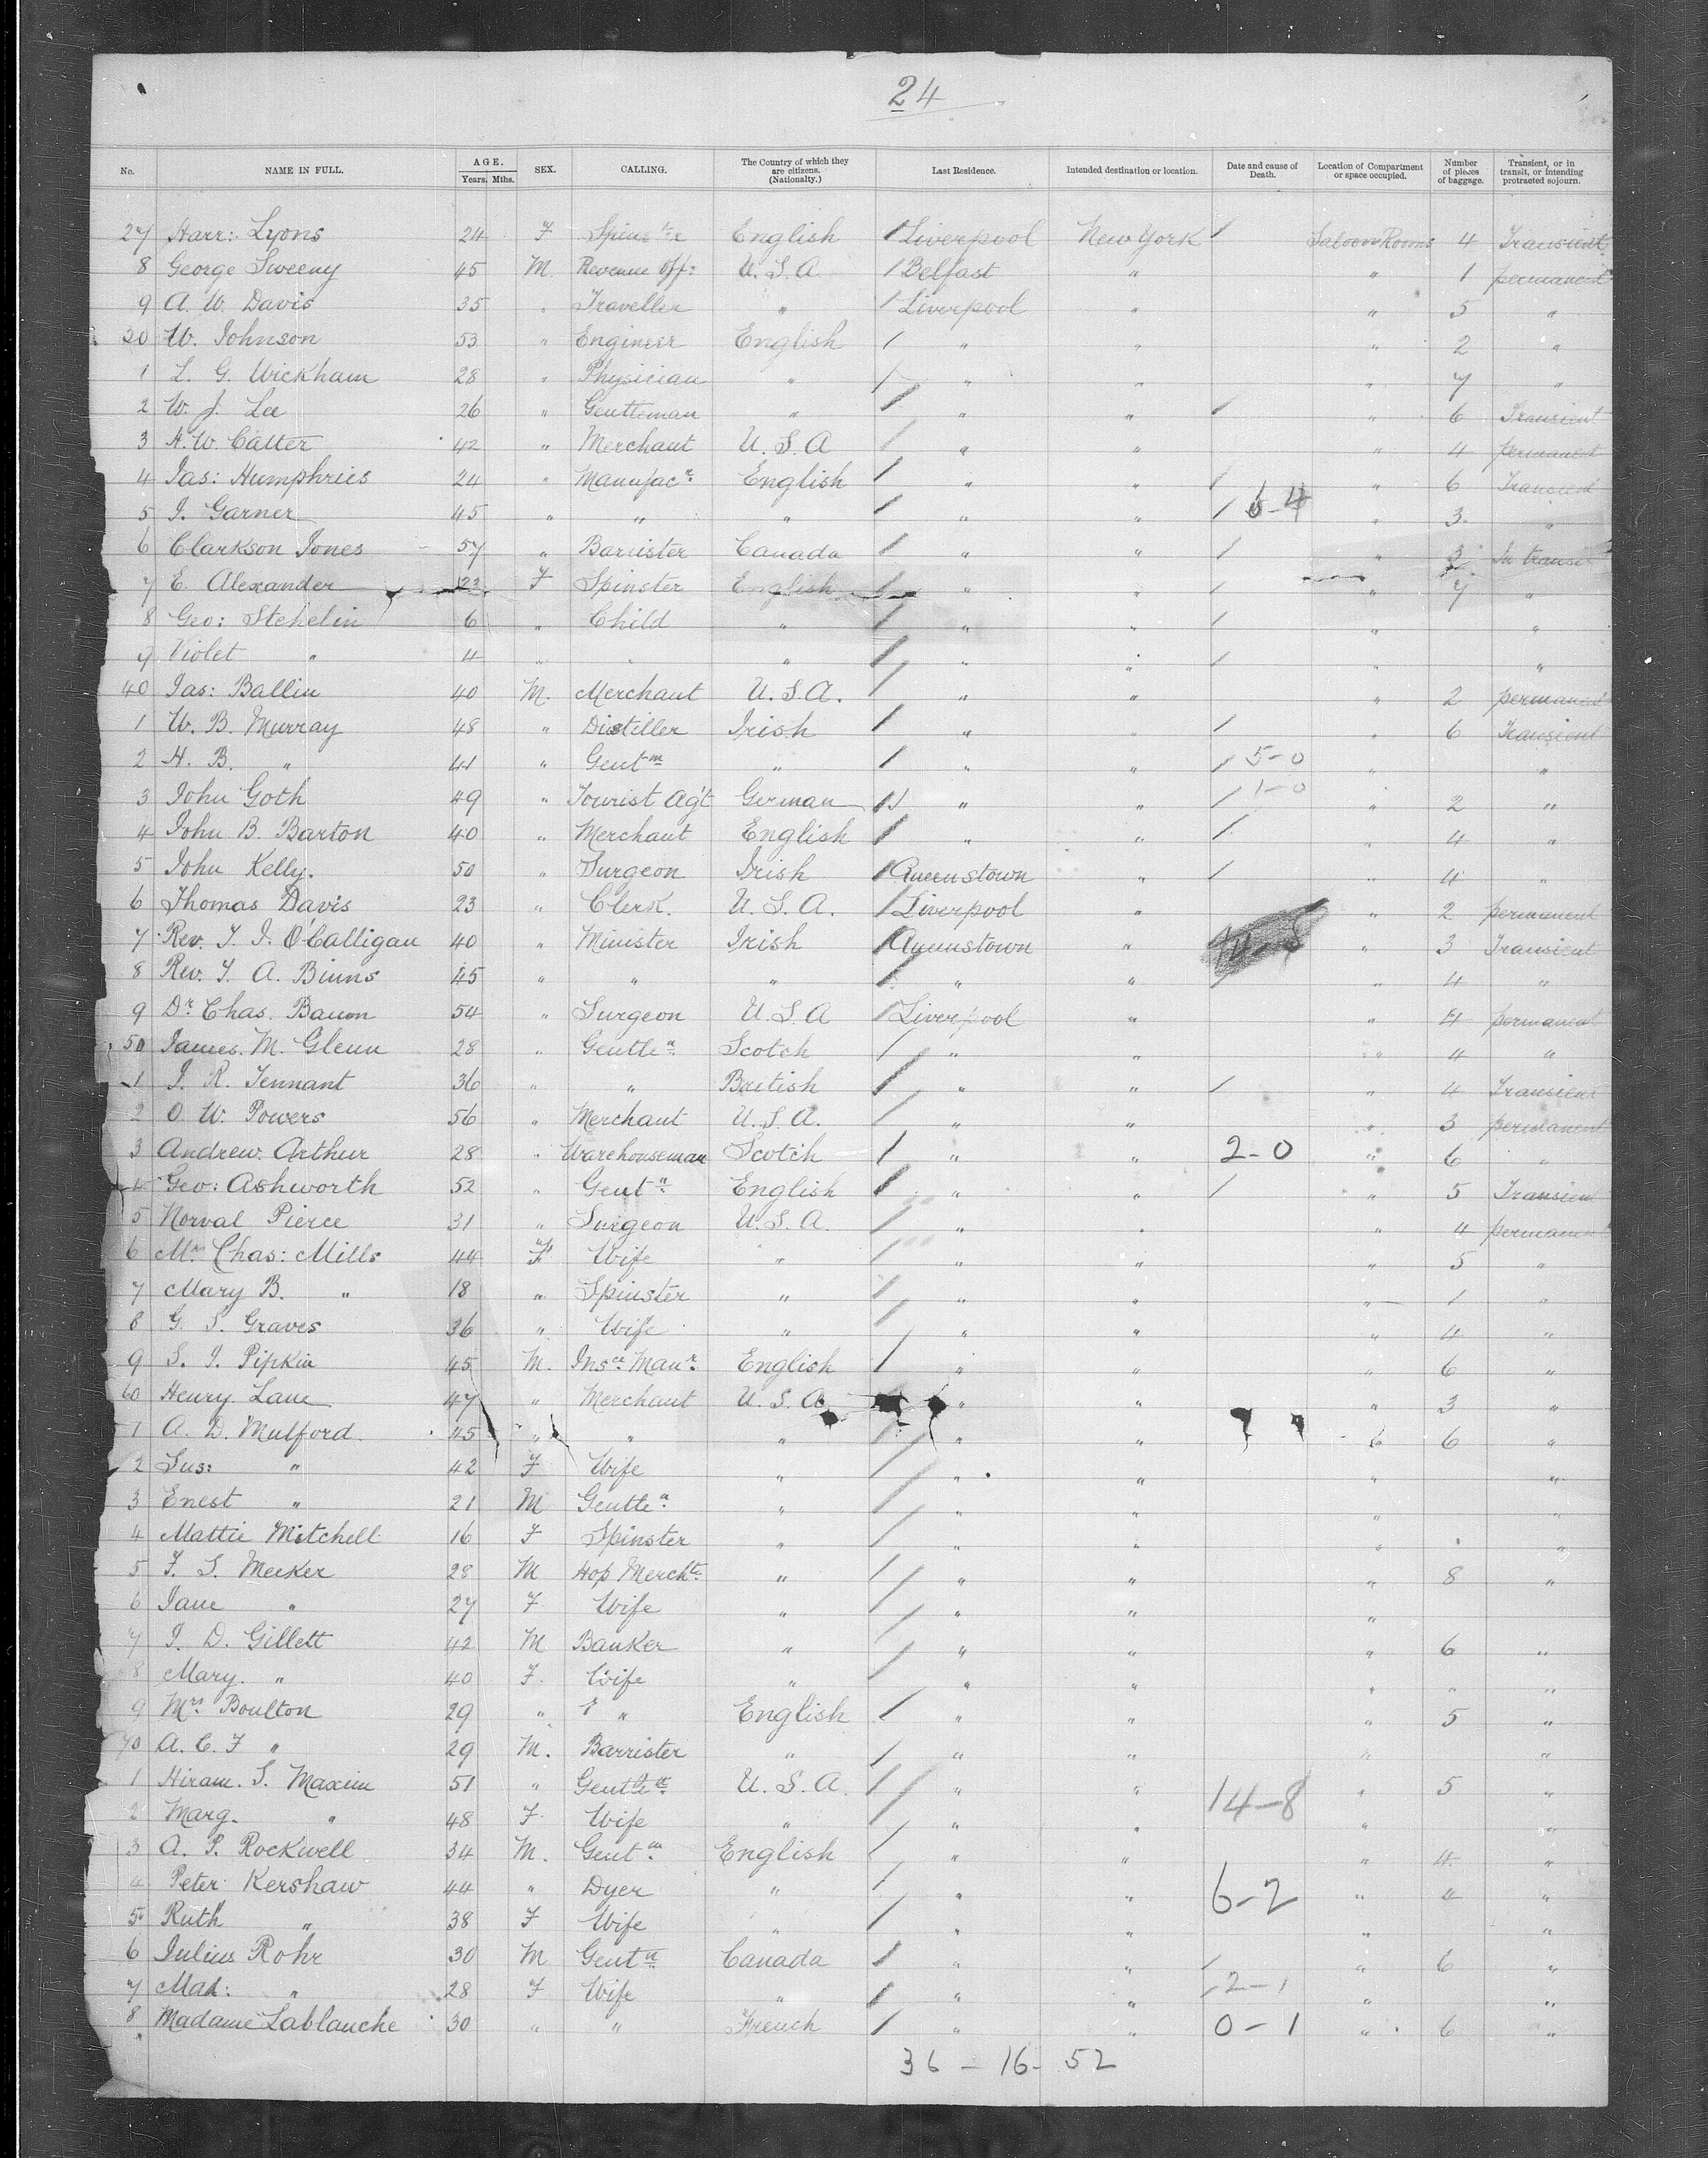 24
No. NAME IN FULL. AGE. Years. Mths. SEX. CALLING. The Country of which they are citizens. (Nationalty.) Last Residence. Intended destination or location. Date and cause of Death. Location of Compartment or space occupied. Number of pieces of baggage. Transient, or in transit, or intending protracted sojourn.
27 Harr: Lyons 24 F Spinster English / Liverpool New York / Saloon Rooms 4 Transient
8 George Sweeny 45 M. Revenue Off: U.S.A. / Belfast " " 1 permanent
9 A. W. Davis 35 " Traveller " / Liverpool " " 5 "
30 W. Johnson 53 " Engineer English / " " " 2 "
1 L. G. Wickham 28 " Physician " / " " " 7 "
2 W. J. Lee 26 " Gentleman " / " " / " 6 Transient
3 H. W. Catter 42 " Merchant U.S.A / " " " 4 permanent
4 Jas: Humphries 24 " Manufacr English / " " / " 6 Transient
5 J. Garner 45 " " " / " " / 6-4 " 3 "
6 Clarkson Jones 57 " Barrister Canada / " " / " 3 In transit
7 E. Alexander 23 F Spinster English / " " / " 7 "
8 Geo: Stehelin 6 " Child " / " " / " "
9 Violet " 4 " " " / " " / " "
40 Jas: Ballin 40 M. Merchant U.S.A. / " " " 2 permanent
1 W. B. Murray 48 " Distiller Irish / " " / " 6 Transient
2 H. B. " 41 " Gentm " / " " / 5-0 " "
3 John Goth 49 " Tourist Ag't German / " " / 1-0 " 2 "
4 John B. Barton 40 " Merchant English / " " / " 4 "
5 John Kelly. 50 " Surgeon Irish / Queenstown " / " 4 "
6 Thomas Davis 23 " Clerk. U.S.A. / Liverpool " " 2 permanent
7 Rev. T. J. O'Calligan 40 " Minister Irish / Queenstown " " 3 Transient
8 Rev. T. A. Binns 45 " " " / " " / " 4 "
9 Dr Chas. Bauon 54 " Surgeon U.S.A / Liverpool " " 4 permanent
50 James. M. Glenn 28 " Gentlen Scotch / " " " 4 "
1 J. R. Tennant 36 " " British / " " / " 4 Transient
2 O. W. Powers 56 " Merchant U.S.A. / " " " 3 permanent
3 Andrew Arthur 28 " Warehouseman Scotch / " " 2-0 " 6 "
4 Geo: Ashworth 52 " Gentn English / " " / " 5 Transient
5 Norval Pierce 31 " Surgeon U.S.A. / " " " 4 permanent
6 Mrs Chas: Mills 44 F Wife " / " " " 5 "
7 Mary B. " 18 " Spinster " / " " " 1 "
8 G. S. Graves 36 " Wife " / " " " 4 "
9 S. J. Pipkin 45 M. Insce Manr English / " " " 6 "
60 Henry Lane 47 " Merchant U.S.A " " " 3 "
1 A. D. Mulford. 45 " " " / " " " 6 "
2 Sus: " 42 F Wife " / " " " "
3 Enest " 21 M Gentlen " / " " " "
4 Mattie Mitchell 16 F Spinster " / " " " "
5 F. S. Meeker 28 M Hop Merchte " / " " " 8 "
6 Jane " 27 F Wife " / " " " "
7 J. D. Gillett 42 M Banker " / " " " 6 "
8 Mary. " 40 F. Wife " / " " " " "
9 Mrs Boulton 29 " " English / " " " 5 "
70 A. C. F " 29 M. Barrister " / " " " "
1 Hiram. S. Maxim 51 " Gentlen U.S.A. / " " " 5 "
2 Marg. " 48 F. Wife " / " " 14-8 " "
3 A. P. Rockwell 34 M. Gentm English / " " " 4 "
4 Peter Kershaw 44 " Dyer " / " " 6-2 " 4 "
5 Ruth " 38 F Wife " / " " " "
6 Julius Rohr 30 M Gentn Canada / " " / " 6 "
7 Mad: " 28 F Wife " / " " / 2-1 " "
8 Madame Lablanche 30 " " French / " " 0-1 " 6 "
36 - 16 - 52